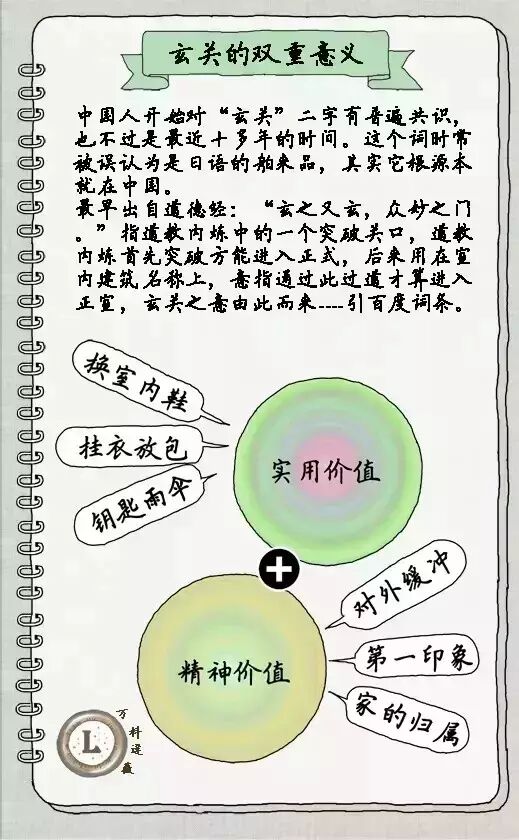 玄关的双重意义
中国人开始对“玄关”二字有普遍共识，
也不过是最近十多年的时间。这个词时常
被误认为是日语的舶来品，其实它根源本
就在中国。
最早出自道德经：“玄之又玄，众妙之门
。”指道教内炼中的一个突破关口，道教
内炼首先突破方能进入正式，后来用在室
内建筑名称上，意指通过此过道才算进入
正室，玄关之意由此而来----引百度词条。
换室内鞋
挂衣放包
钥匙雨伞
实用价值
+
对外缓冲
第一印象
家的归属
精神价值
L
万料